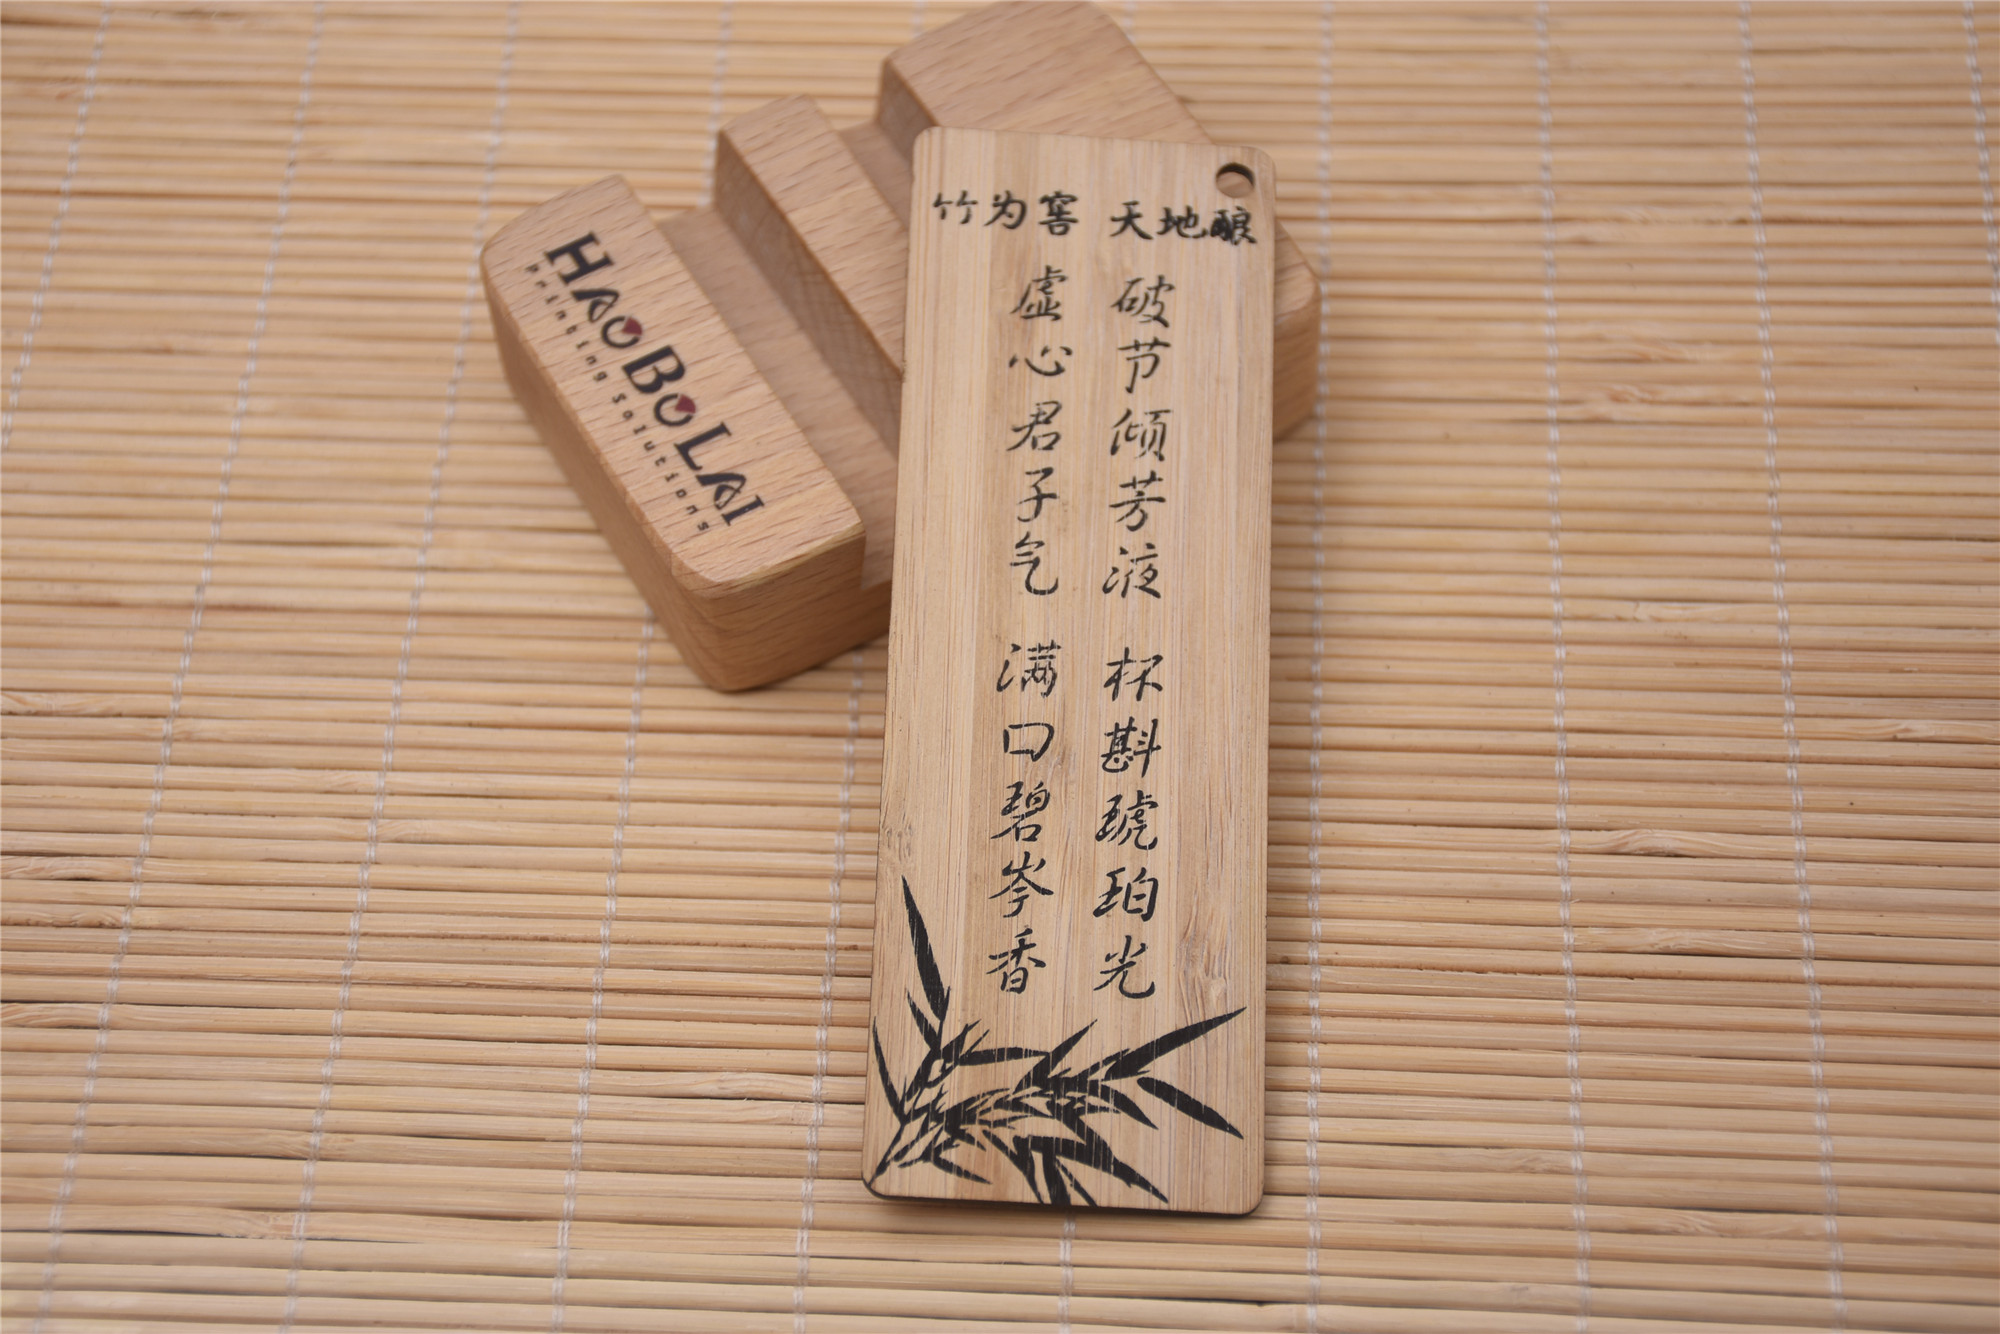 竹为窖 天地酿
破节倾芳液 杯斟琥珀光
虚心君子气 满口碧岑香
HAOBOLAI
Printing Solutions